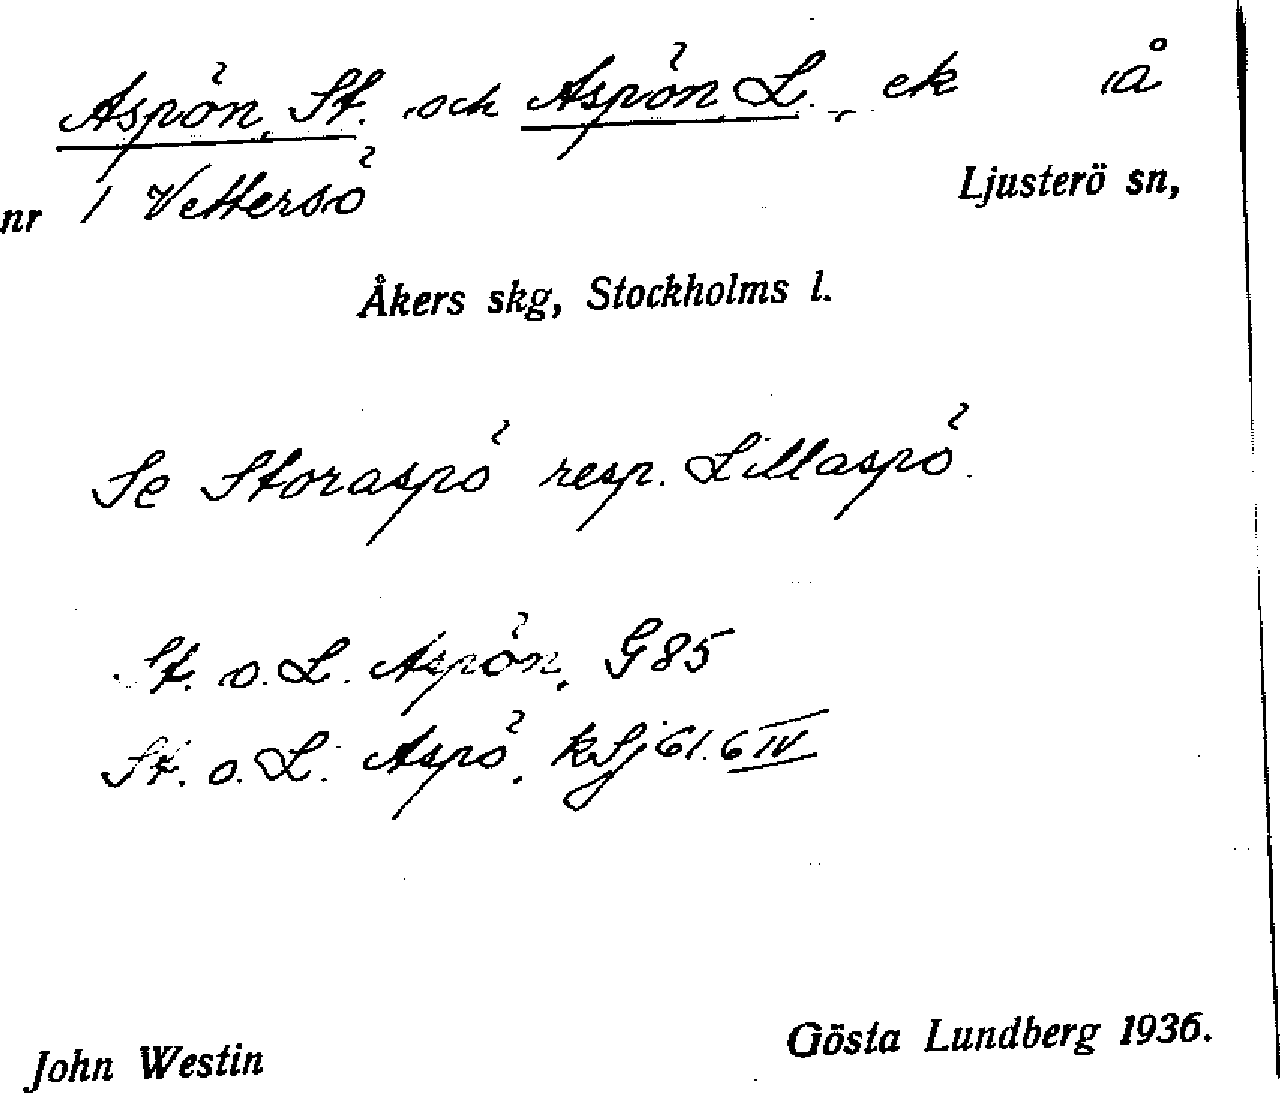 Aspön, St. och Aspön, L., ek å
nr 1 Vettersö Ljusterö sn,
Åkers skg, Stockholms l.
Se Storaspö resp. Lillaspö.
St. o. L. Aspön, G 85
St. o. L. Aspö, kSj 61.6 IV
John Westin Gösta Lundberg 1936.